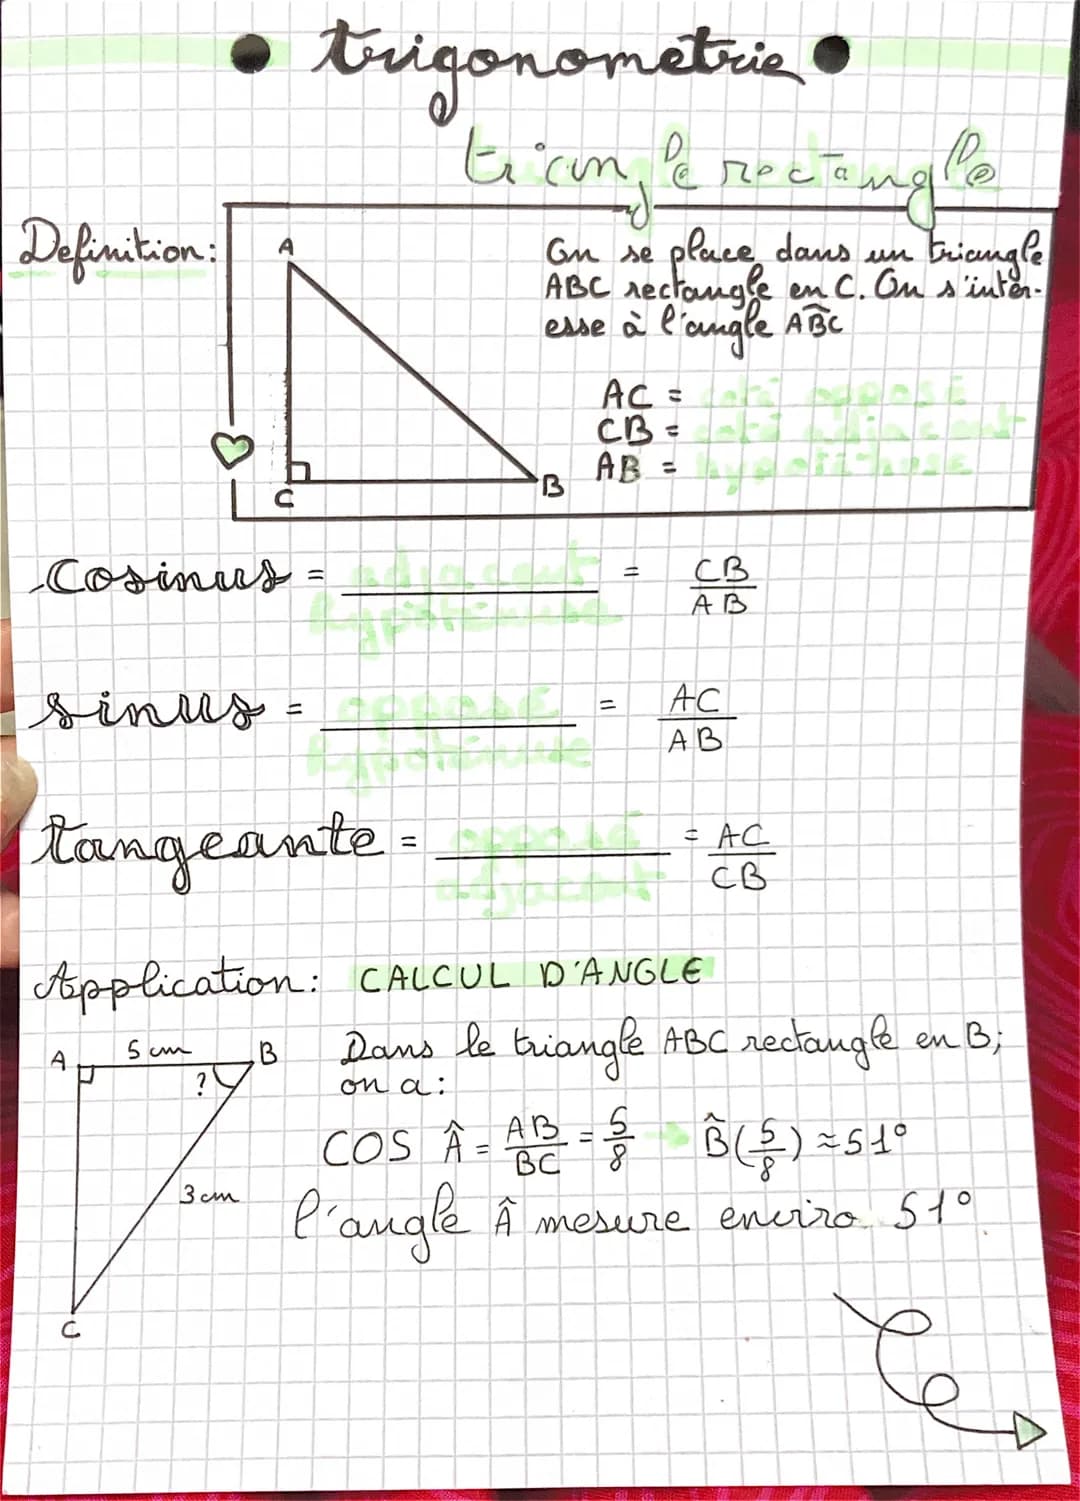 • trigonométrie •
triangle rectangle
Definition:
A
C
B
On se place dans un triangle
ABC rectangle en C. On s'intér-
esse à l'angle ABC
AC = coté opposé
CB = coté adjacent
AB = hypothénuse
Cosinus = adjacent / hypoténuse = CB / AB
sinus = opposé / hypoténuse = AC / AB
tangeante = opposé / adjacent = AC / CB
Application: CALCUL D'ANGLE
A 5 cm B
?
3 cm
C
Dans le triangle ABC rectangle en B;
on a:
COS Â = AB / BC = 5/8 → B̂(5/8) ≈ 51°
l'angle Â mesure enviro 51°